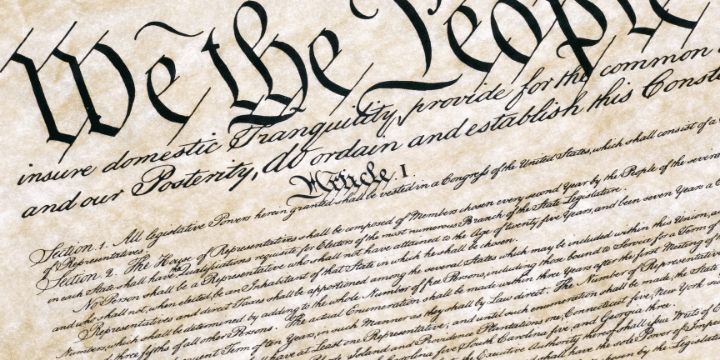 We the People
insure domestic Tranquility, provide for the common
and our Posterity, do ordain and establish this Const
Article. I.
Section. 1. All legislative Powers herein granted shall be vested in a Congress of the United States, which shall consist of a
of Representatives.
Section. 2. The House of Representatives shall be composed of Members chosen every second Year by the People of the several
in each State shall have the Qualifications requisite for Electors of the most numerous Branch of the State Legislature.
No Person shall be a Representative who shall not have attained to the Age of twenty five Years, and been seven Years a C
and who shall not, when elected, be an Inhabitant of that State in which he shall be chosen.
Representatives and direct Taxes shall be apportioned among the several States which may be included within this Union, a
Numbers, which shall be determined by adding to the whole Number of free Persons, including those bound to Service for a Term of
three fifths of all other Persons. The actual Enumeration shall be made within three Years after the first Meeting of
Term of ten Years, in such Manner as they shall by Law direct. The Number of Representatives
have at Least one Representative; and until such enumeration shall be made, the State
Island and Providence Plantations one, Connecticut five, New York
Carolina five, South Carolina five, and Georgia three.
the Executive Authority thereof shall issue Writs of
shall have the sole Power of Imp